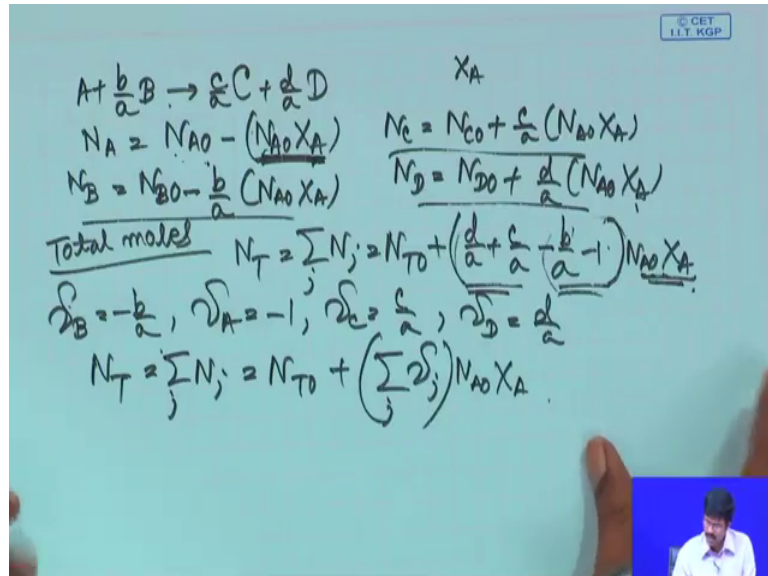 © CET
I.I.T. KGP
A + b/a B → c/a C + d/a D
X_A
N_A = N_A0 - (N_A0 X_A)
N_C = N_C0 + c/a (N_A0 X_A)
N_B = N_B0 - b/a (N_A0 X_A)
N_D = N_D0 + d/a (N_A0 X_A)
Total moles N_T = Σ_j N_j = N_T0 + (d/a + c/a - b/a - 1) N_A0 X_A
ϑ_B = -b/a, ϑ_A = -1, ϑ_C = c/a, ϑ_D = d/a
N_T = Σ_j N_j = N_T0 + (Σ_j ϑ_j) N_A0 X_A.